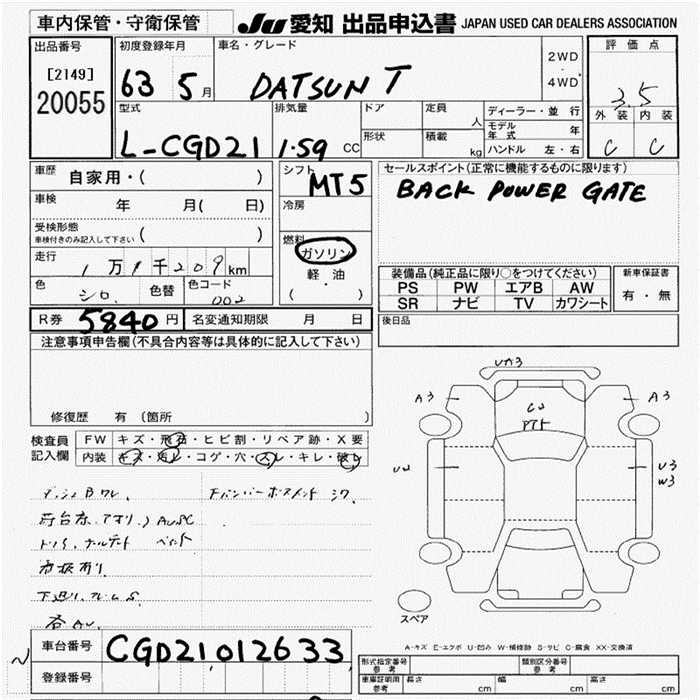 車内保管・守衛保管
JU 愛知 出品申込書 JAPAN USED CAR DEALERS ASSOCIATION
出品番号
[2149]
20055
初度登録年月
63 5月
車名・グレード
DATSUN T
2WD
・
4WD
評価点
3.5
外装 内装
C C
型式
L-CGD21
排気量
1.59 CC
ドア
定員
人
形状
積載
kg
ディーラー・並行
モデル年式 年
ハンドル 左・右
車歴
自家用・( )
車検 年 月( 日)
受検形態
車検付きのみ記入して下さい ( )
走行
1万9千209km
色
シロ
色替
色コード
002
シフト
MT5
冷房
燃料
ガソリン
軽・油
( ・ )
セールスポイント(正常に機能するものに限ります)
BACK POWER GATE
装備品(純正品に限り○をつけてください)
PS PW エアB AW
SR ナビ TV カワシート
新車保証書
有・無
R券 5840円
名変通知期限 月 日
後日品
注意事項申告欄(不具合内容等は具体的に記入して下さい)
修復歴 有(箇所 )
検査員記入欄
FW キズ・飛石・ヒビ割・リペア跡・X要
内装 キズ・汚レ・コゲ・穴・スレ・キレ・破レ
UA3
A3
A3
U2
U3
W3
スペア
A-キズ E-エクボ U-凹み W-補修跡 S-サビ C-腐食 XX-交換済
車台番号 CGD21012633
登録番号
型式指定番号 参考
類別区分番号 参考
車庫証明用 参考
長さ cm
幅 cm
高さ cm